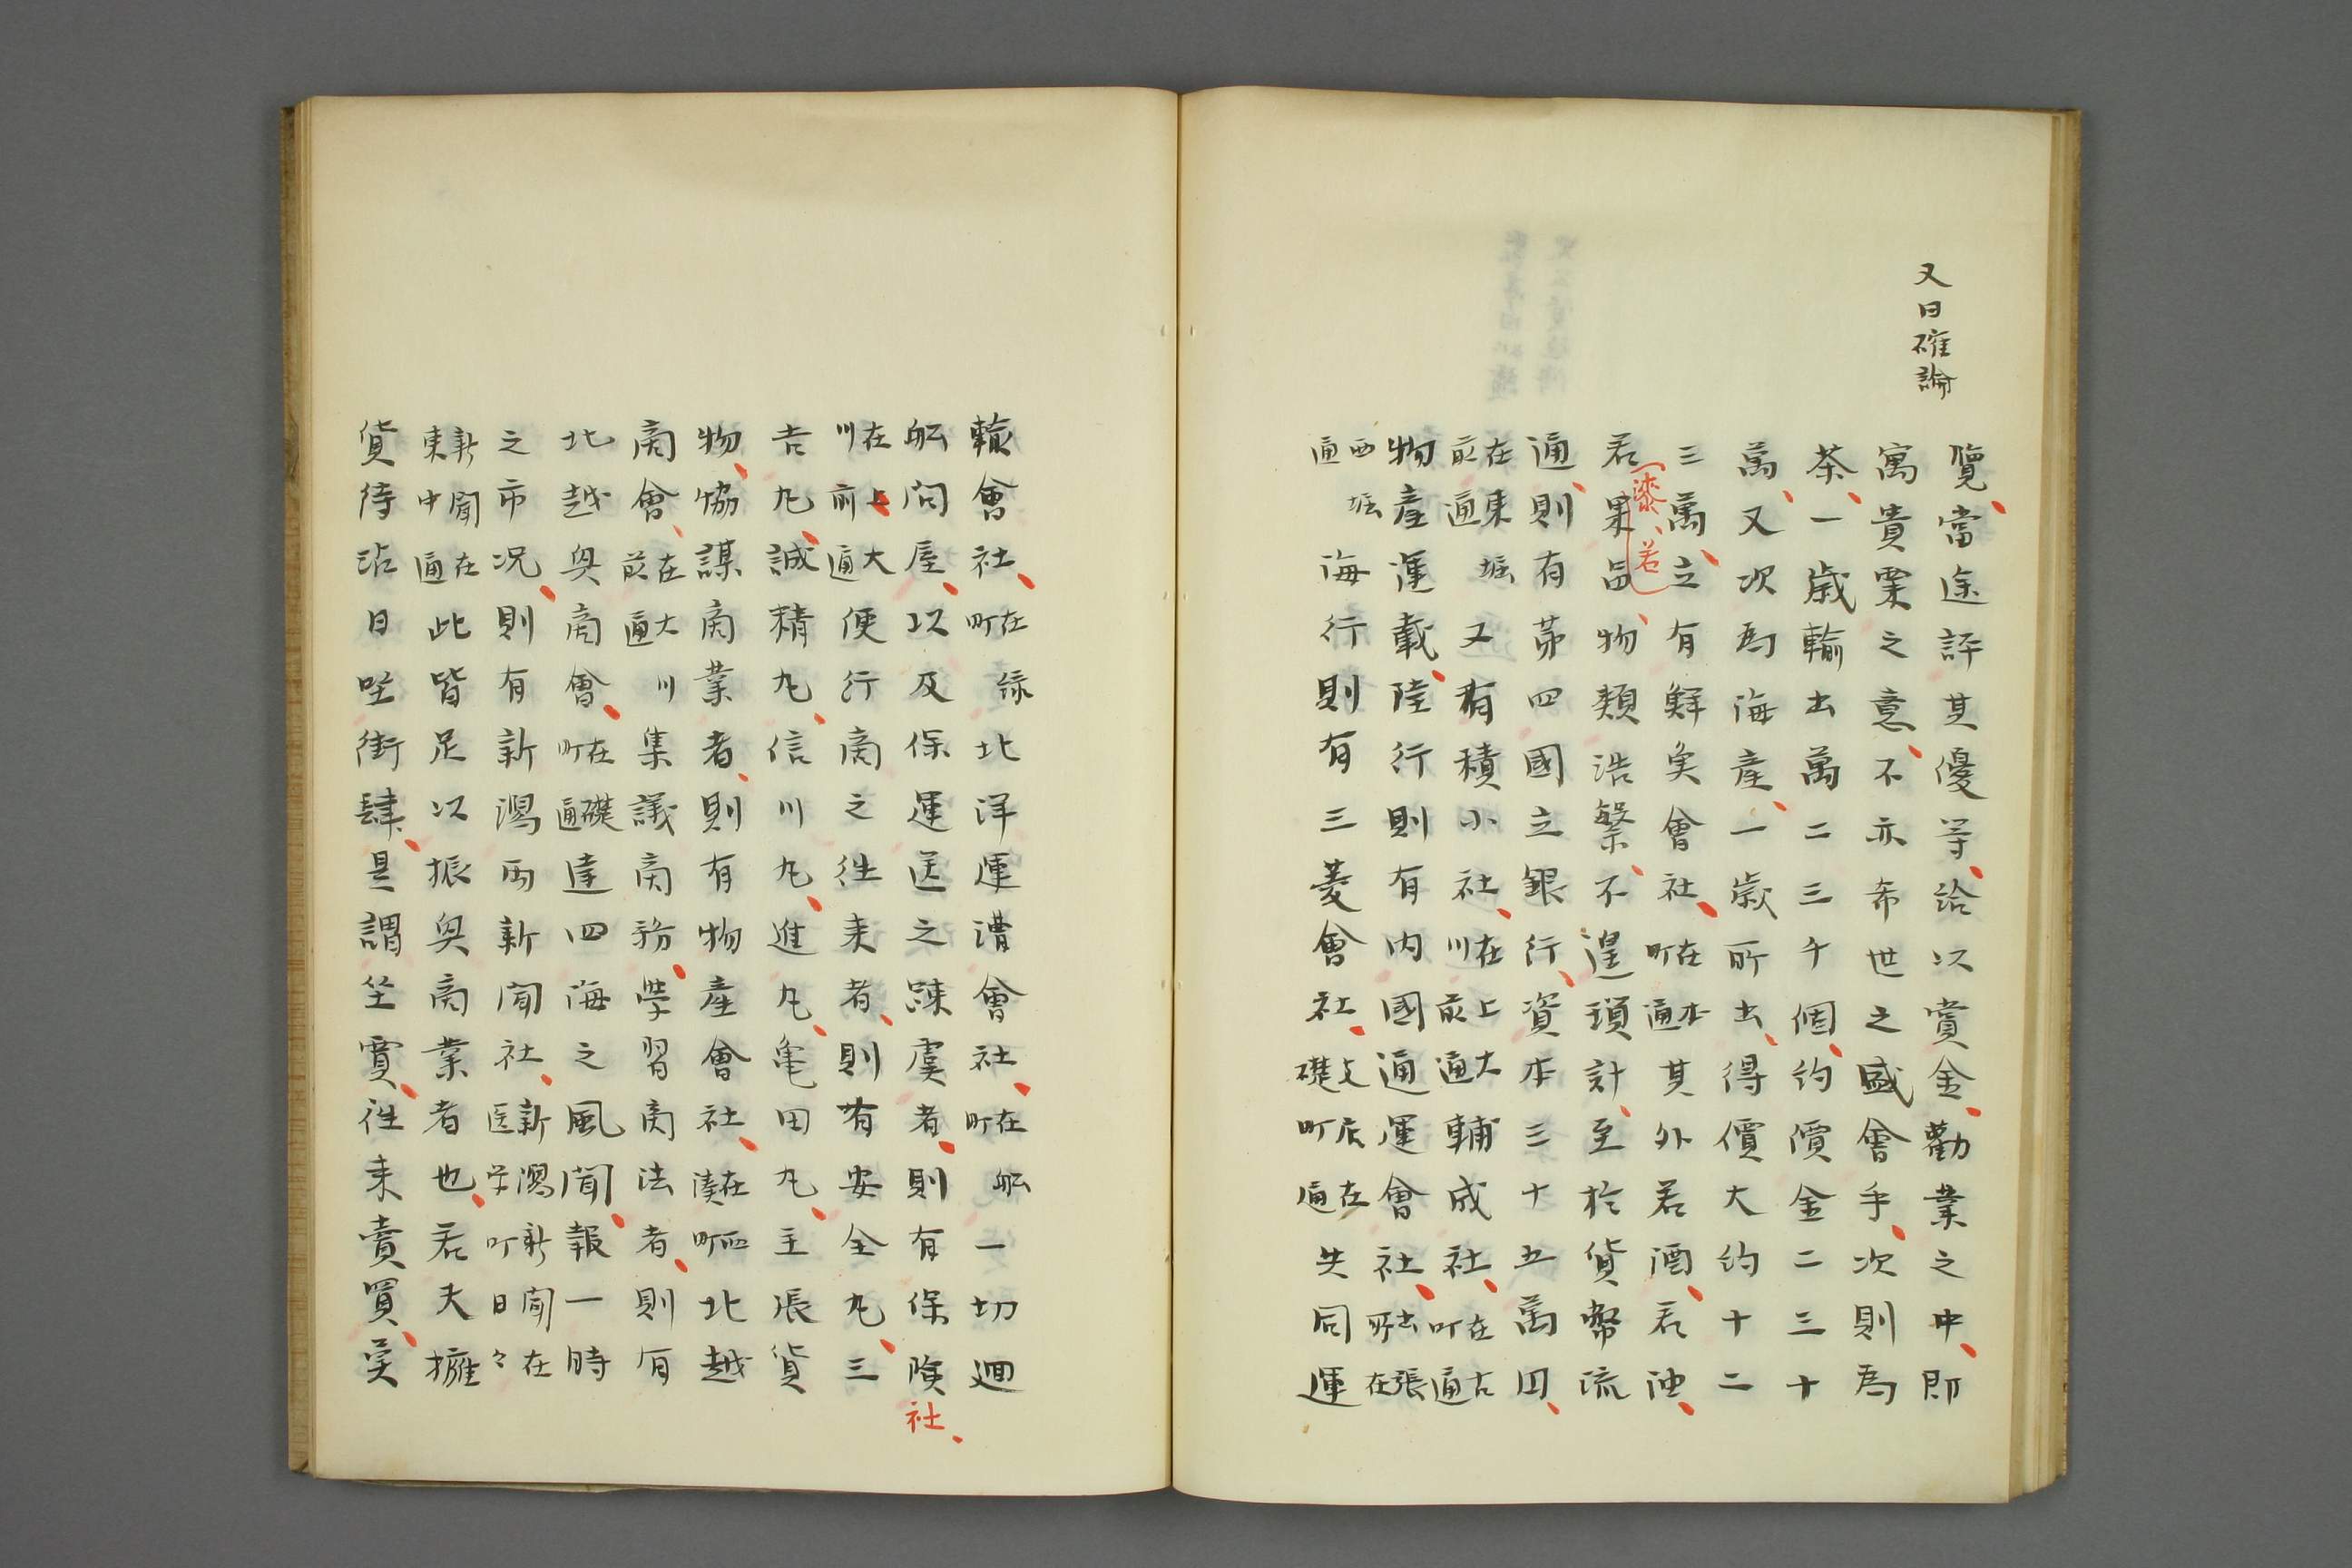 又曰確論
覽、當途評其優等、給以賞金、勸業之中、即
寓貴業之意、不亦希世之盛會乎、次則為
茶、一歳輸出萬二三千個、約價金二三十
萬、又次為海産、一歳所出、得價大約十二
三萬、立有鮮魚會社、在本町通其外若酒、若油、
漆、若
若果品、物類浩繁、不遑瑣計、至於貨幣流
通、則有第四國立銀行、資本三十五萬円、
在東堀前通又有積小社、在上大川前通輔成社、在古町通
物産運載、陸行則有内國通運會社、出張所在
西堀通海行則有三菱會社、支店在礎町通共同運
輸會社、在緑町北洋運漕會社、在舩町一切廻
舩問屋、以及保運送之踈虞者、則有保険
社、
在上大川前通便行商之往来者、則有安全丸、三
吉丸、誠精丸、信川丸、進丸、亀田丸、主張貨
物、協謀商業者、則有物産會社、在西湊町北越
商會、在大川前通集議商務、學習商法者、則有
北越興商會、在礎町通達四海之風聞、報一時
之市況、則有新潟両新聞社、新潟新聞在医学町日々
新聞在東中通此皆足以振興商業者也、若夫擁
貨待沽日坐街肆、是謂坐賈、往来賣買、